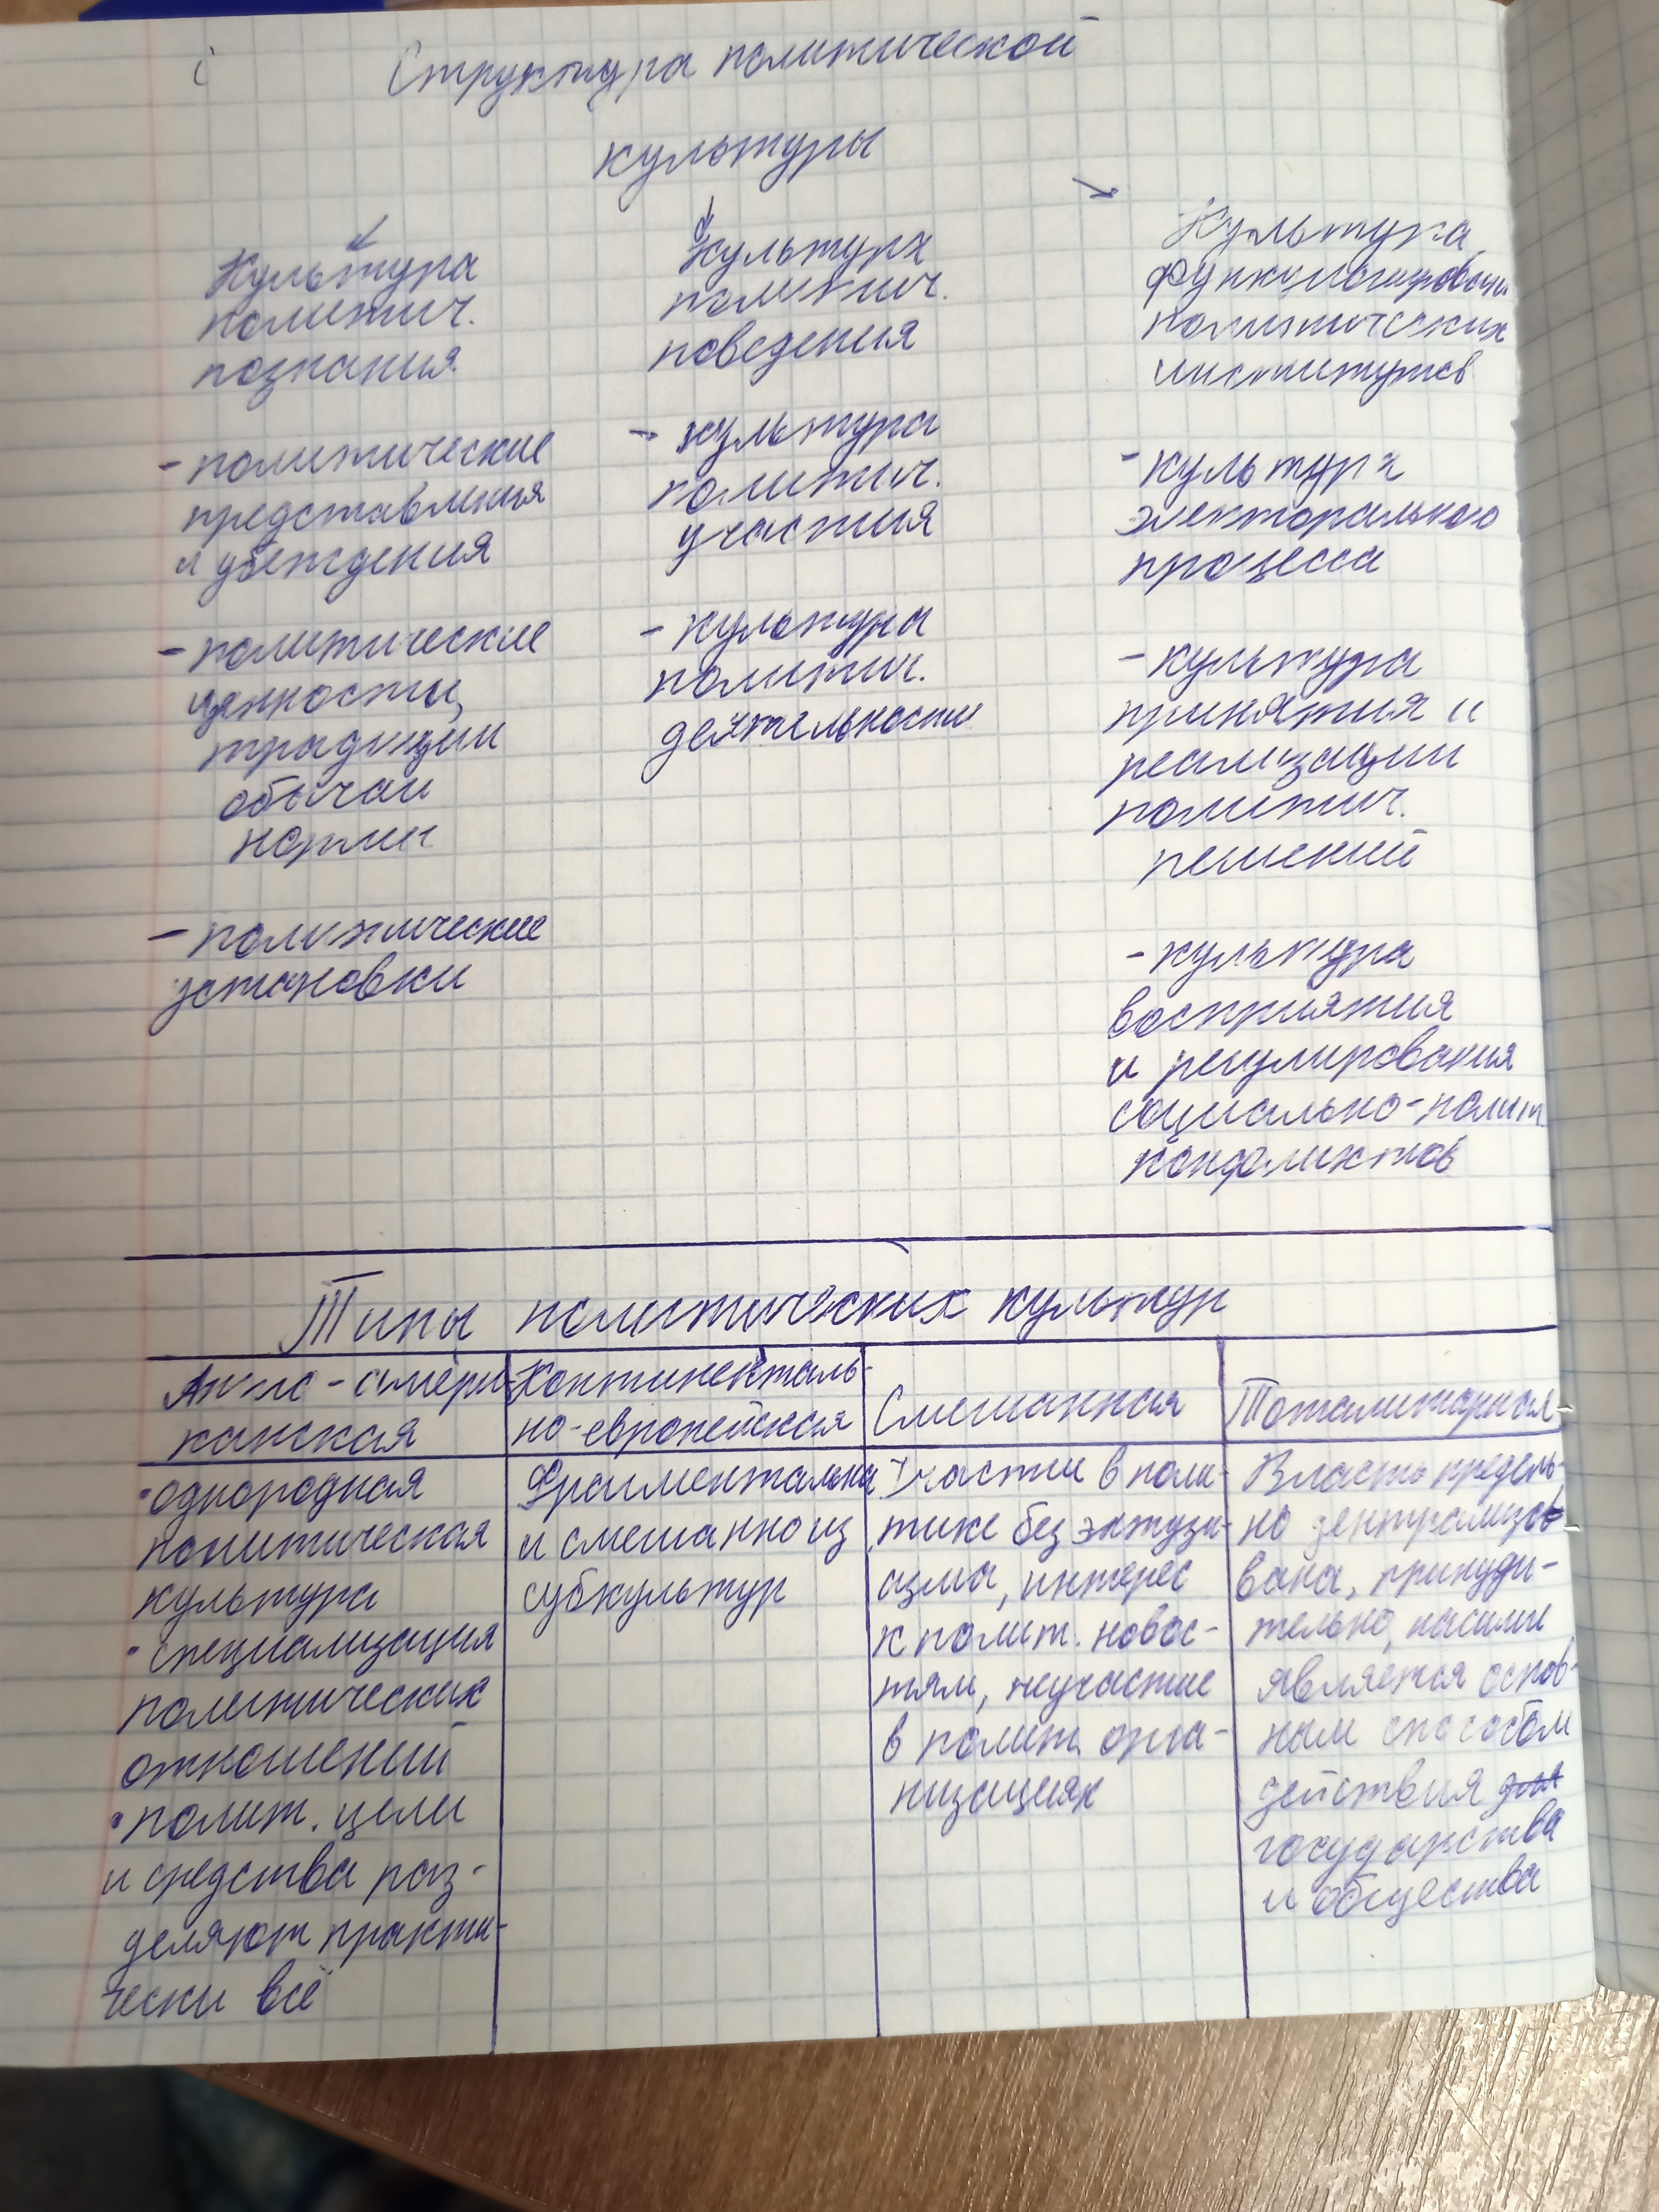 Структура политической
культуры
Культура
политич.
познания
- политические
представления
и убеждения
- политические
ценности,
традиции
обычаи
нормы
- политические
установки
Культура
политич.
поведения
- культура
политич.
участия
- культура
политич.
деятельности
Культура
функционирован
политических
институтов
- культура
электорального
процесса
- культура
принятия и
реализации
политич.
решений
- культура
восприятия
и регулирования
социально-полит
конфликтов
Типы политических культур
Англо-амери-
канская
• однородная
политическая
культура
• специализация
политических
отношений
• полит. цели
и средства раз-
деляют практи-
чески всё
Континенталь-
но-европейская
Фрагментальна
и смешанно из
субкультур
Смешанная
Участие в поли-
тике без энтузи-
азма, интерес
к полит. новос-
тям, неучастие
в полит. орга-
низациях
Тоталитарная
Власть предель-
но централизо-
вана, принуди-
тельно, насилие
является основ-
ным способом
действия для
государства
и общества